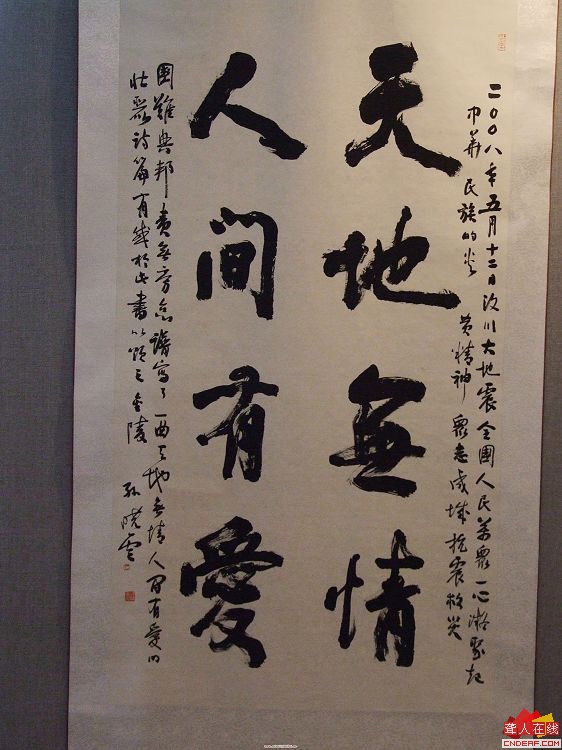 二〇〇八年五月十二日汶川大地震全國人民萬眾一心凝聚起
中華民族的炎黃精神眾志成城抗震救災
天地無情
人間有愛
國難興邦責無旁貸譜寫了一曲天地無情人間有愛的
壯麗詩篇有感於此書以頌之金陵 孫曉雲
聋人在线
CNDEAF.COM